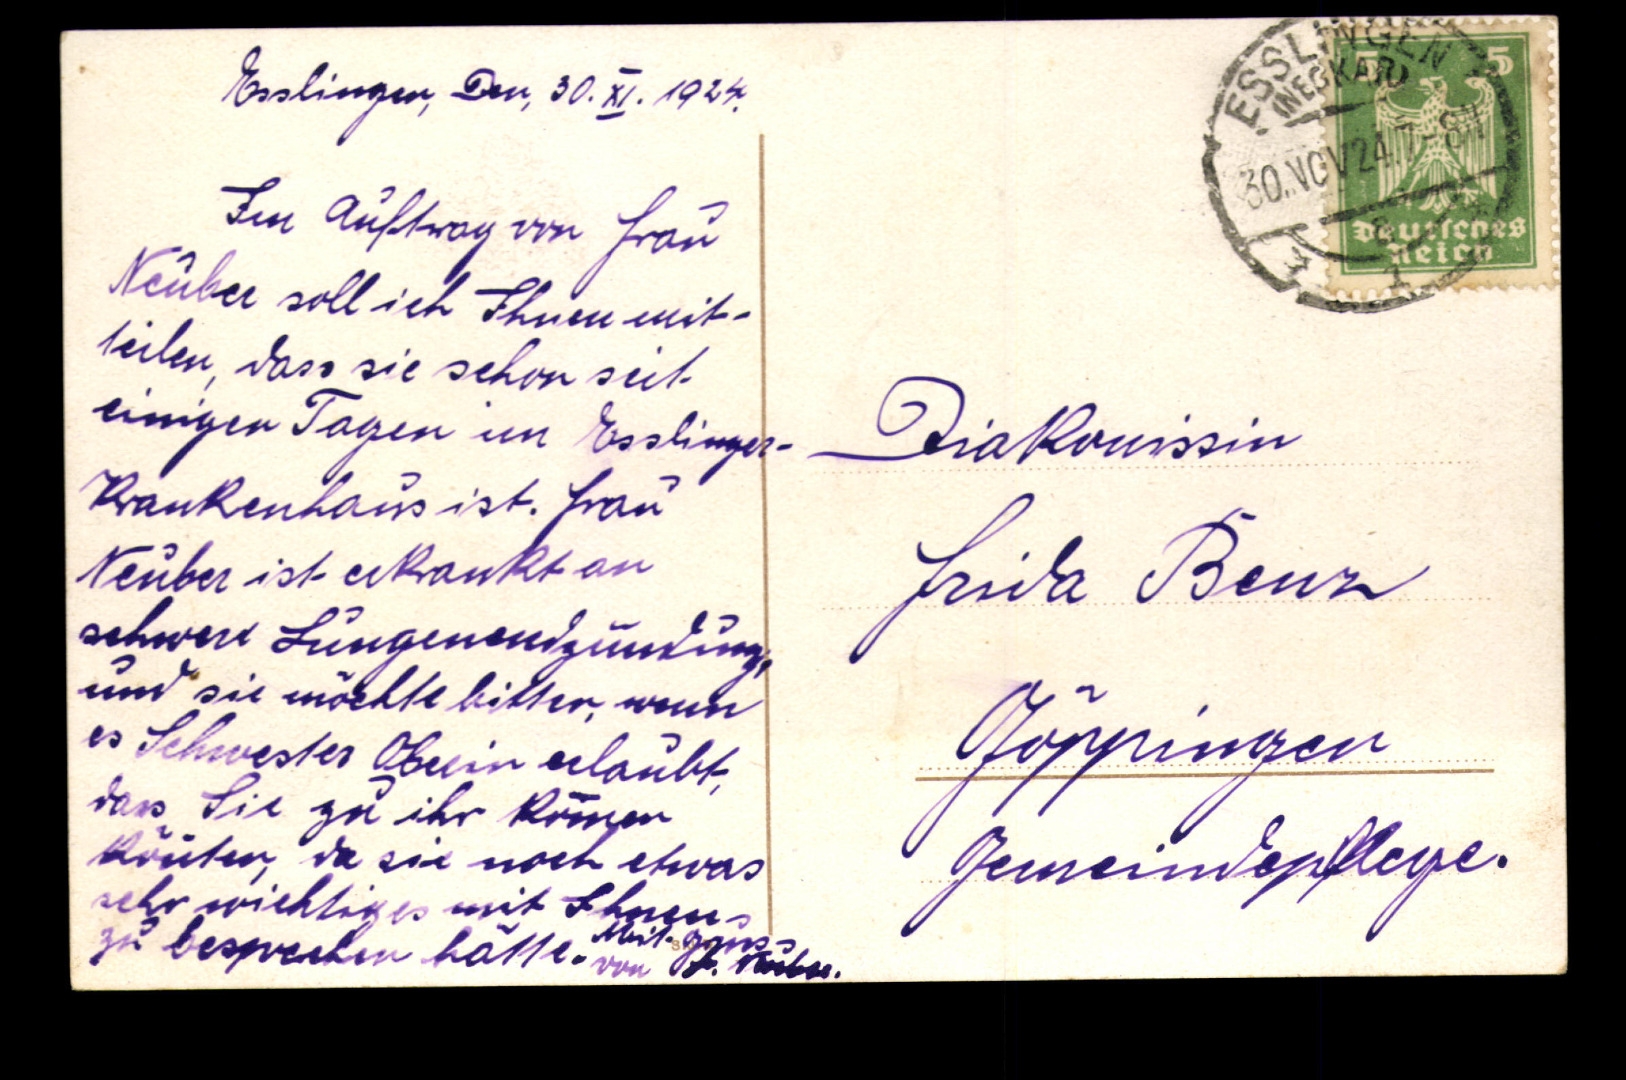 Esslingen, Den, 30. XI. 1924.
Im Auftrag von Frau
Neuber soll ich Ihnen mit-
teilen, dass sie schon seit
einigen Tagen im Esslinger-
Krankenhaus ist. Frau
Neuber ist erkrankt an
schwere Lungenendzündung,
und sie möchte bitten, wenn
es Schwester Oberin erlaubt,
dass Sie zu ihr kom̄en
könten, da sie noch etwas
sehr wichtiges mit Ihnen
zu besprechen hätte. Mit
von F. Neuber.
Diakonissin
Frida Benz
Göppingen
Gemeindepflege.
ESSLINGEN
(NECKAR)
30.NOV24.7-8N
5 5
Deutsches
Reich